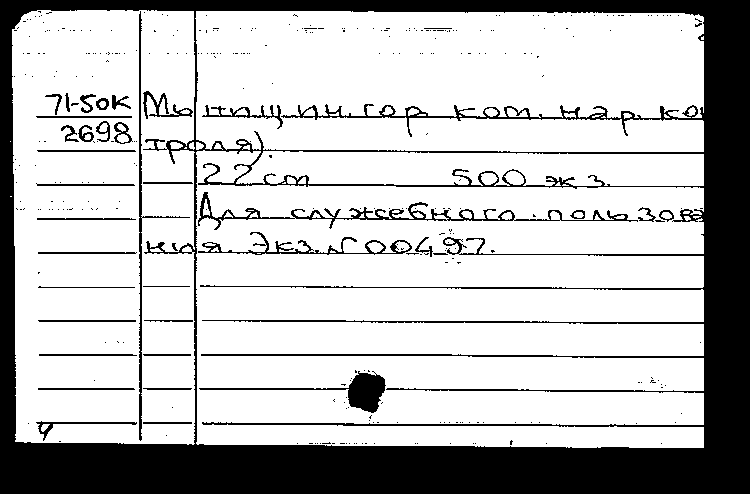 71-50к Мытищин. гор. ком. нар. кон
2698 троля).
22 cm 500 экз.
Для служебного пользова
ния. Экз. N 00497.
4